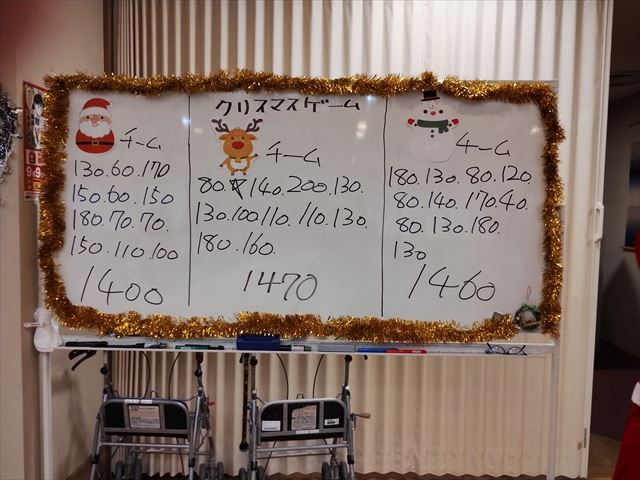 クリスマスゲーム
チーム
130.60.170
150.60.150
180.70.70.
150.110.100
1400
チーム
80.★140.200.130.
130.100.110.110.130.
180.160.
1470
チーム
180.130.80.120.
80.140.170.40.
80.130.180.
130
1460